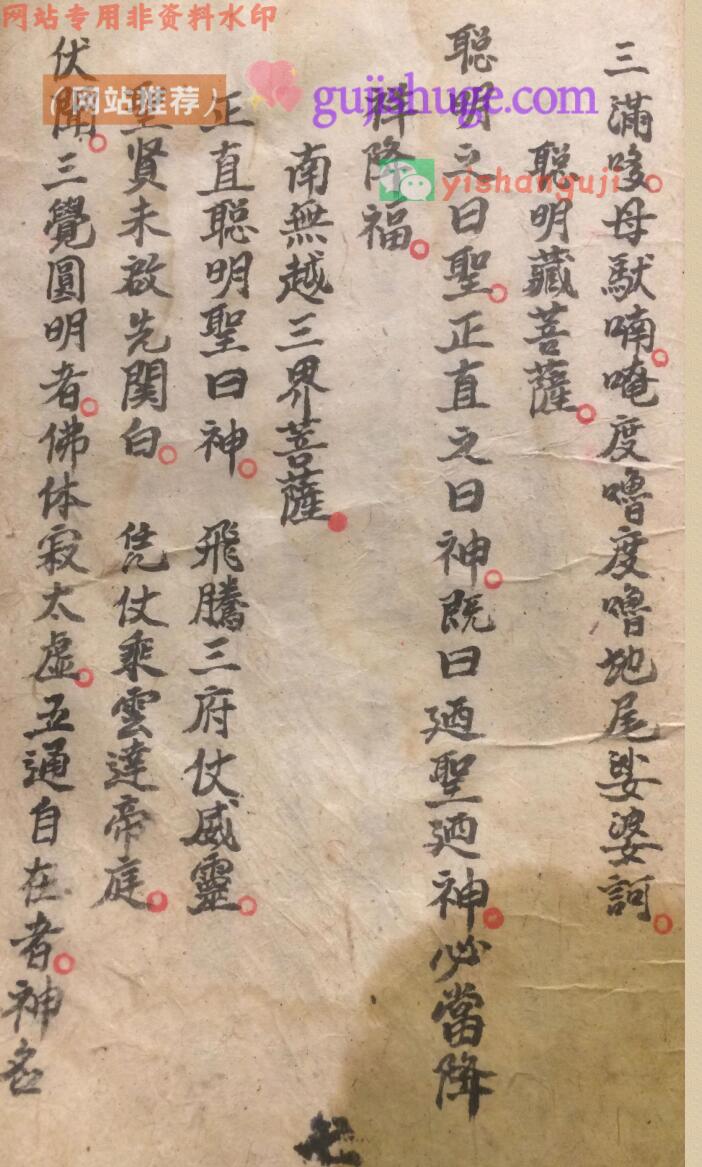 网站专用非资料水印
(网站推荐)
gujishuge.com
yishanguji
三滿哆母馱喃。唵度嚕度嚕地尾娑婆訶。
聰明藏菩薩。
聰明之曰聖。正直之曰神。既曰廼聖廼神。必當降
祥降福。
南無越三界菩薩。
正直聰明聖曰神。飛騰三府仗威靈。
聖賢未啟先関白。凭仗乘雲達帝庭。
伏聞。三覺圓明者。佛体寂太虛。五通自在者。神名
七